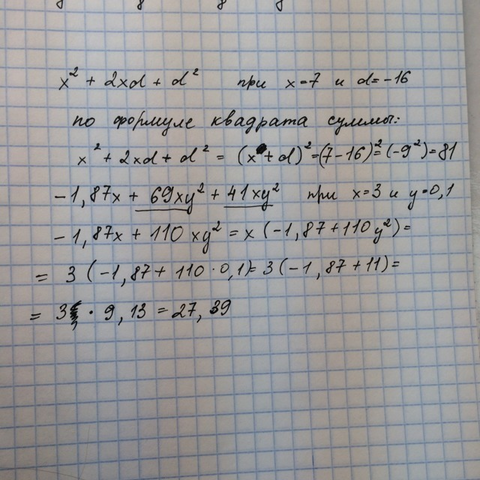 x² + 2xd + d² при x=7 и d=-16
по формуле квадрата суммы:
x² + 2xd + d² = (x + d)² = (7-16)² = (-9²) = 81
-1,87x + 69xy² + 41xy² при x=3 и y=0,1
-1,87x + 110xy² = x(-1,87 + 110y²) =
= 3(-1,87 + 110 · 0,1) = 3(-1,87 + 11) =
= 3 · 9,13 = 27,39